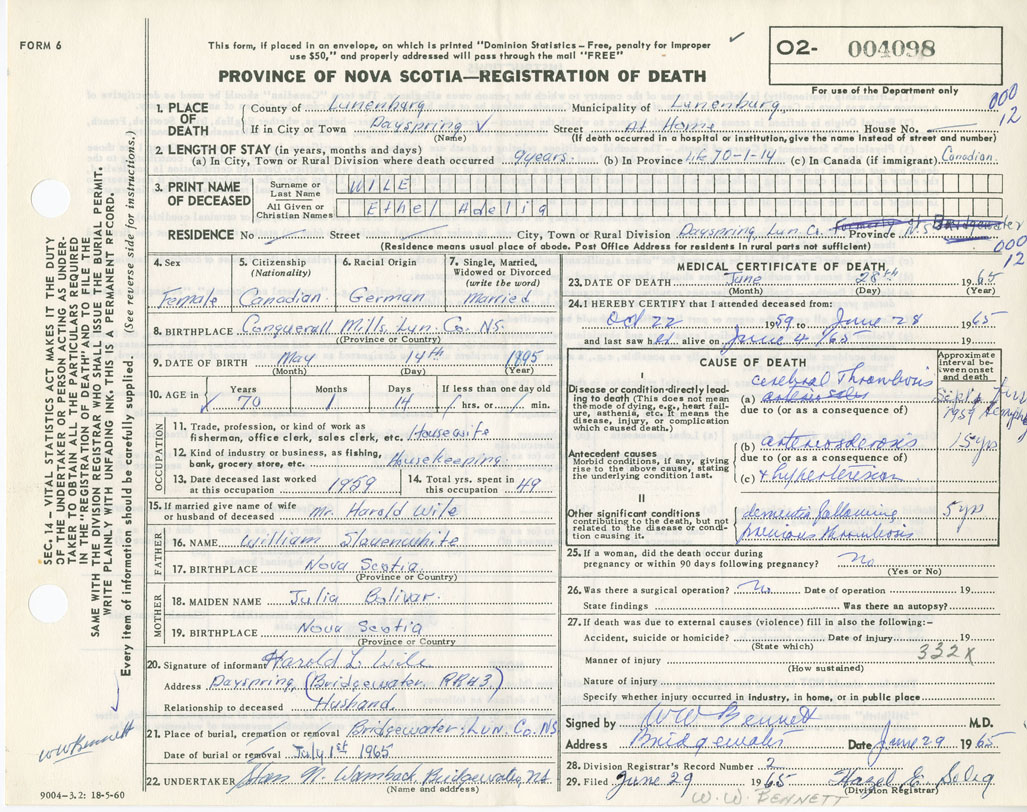 FORM 6
This form, if placed in an envelope, on which is printed "Dominion Statistics – Free, penalty for improper
use $50," and properly addressed will pass through the mail "FREE"
02- 004098
PROVINCE OF NOVA SCOTIA—REGISTRATION OF DEATH
For use of the Department only
000
12
1. PLACE OF DEATH
County of Lunenburg Municipality of Lunenburg
If in City or Town Dayspring Street At Home House No.
(Name) (If death occurred in a hospital or institution, give the name instead of street and number)
2. LENGTH OF STAY (in years, months and days)
(a) In City, Town or Rural Division where death occurred 9 years. (b) In Province Life 70-1-14 (c) In Canada (if immigrant) Canadian
3. PRINT NAME OF DECEASED
Surname or Last Name WILE
All Given or Christian Names Ethel Adelia
RESIDENCE No Street City, Town or Rural Division Dayspring Lun. Co. Province N.S. Formerly Bridgewater
(Residence means usual place of abode. Post Office Address for residents in rural parts not sufficient)
000
12
4. Sex
Female
5. Citizenship
(Nationality)
Canadian
6. Racial Origin
German
7. Single, Married, Widowed or Divorced
(write the word)
Married
8. BIRTHPLACE Conquerall Mills, Lun. Co. NS.
(Province or Country)
9. DATE OF BIRTH May 14th 1895
(Month) (Day) (Year)
10. AGE in
Years 70
Months 1
Days 14
If less than one day old
hrs. or min.
OCCUPATION
11. Trade, profession, or kind of work as
fisherman, office clerk, sales clerk, etc. Housewife
12. Kind of industry or business, as fishing,
bank, grocery store, etc. Housekeeping.
13. Date deceased last worked
at this occupation 1959
14. Total yrs. spent in
this occupation 49
15. If married give name of wife
or husband of deceased Mr. Harold Wile
FATHER
16. NAME William Slauenwhite
17. BIRTHPLACE Nova Scotia
(Province or Country)
MOTHER
18. MAIDEN NAME Julia Bolivar.
19. BIRTHPLACE Nova Scotia
(Province or Country
20. Signature of informant Harold L. Wile
Address Dayspring, (Bridgewater RR#3)
Relationship to deceased Husband.
21. Place of burial, cremation or removal Bridgewater, Lun. Co. NS
Date of burial or removal July 1st 1965
22. UNDERTAKER W. Wamback Bridgewater, NS
(Name and address)
MEDICAL CERTIFICATE OF DEATH
23. DATE OF DEATH June 28th 1965
(Month) (Day) (Year)
24. I HEREBY CERTIFY that I attended deceased from:
Oct 22 1959 to June 28 1965
and last saw her alive on June 4 1965
CAUSE OF DEATH
Approximate interval between onset and death
I
Disease or condition directly leading to death (This does not mean the mode of dying, e.g., heart failure, asthenia, etc. It means the disease, injury, or complication which caused death.)
(a) cerebral Thrombosis
Sept 1959
due to (or as a consequence of)
Antecedent causes
Morbid conditions, if any, giving rise to the above cause, stating the underlying condition last.
(b) arteriosclerosis 15 yrs
due to (or as a consequence of)
(c) + hypertension
II
Other significant conditions
contributing to the death, but not related to the disease or condition causing it.
dementia following
previous thrombosis 5 yrs
25. If a woman, did the death occur during
pregnancy or within 90 days following pregnancy? No
(Yes or No)
26. Was there a surgical operation? No Date of operation 19
State findings Was there an autopsy?
27. If death was due to external causes (violence) fill in also the following:–
Accident, suicide or homicide? Date of injury 19
(State which)
332X
Manner of injury
(How sustained)
Nature of injury
Specify whether injury occurred in industry, in home, or in public place
Signed by WW Bennett M.D.
Address Bridgewater Date June 29 1965
28. Division Registrar's Record Number 2
29. Filed June 29 1965 Hazel E. Selig
(Division Registrar)
W. W. BENNETT
SEC. 14 – VITAL STATISTICS ACT MAKES IT THE DUTY
OF THE UNDERTAKER OR PERSON ACTING AS UNDER-
TAKER TO OBTAIN ALL THE PARTICULARS REQUIRED
IN THE "REGISTRATION OF DEATH" AND TO FILE THE
SAME WITH THE DIVISION REGISTRAR WHO SHALL ISSUE THE BURIAL PERMIT.
WRITE PLAINLY WITH UNFADING INK. THIS IS A PERMANENT RECORD.
Every item of information should be carefully supplied. (See reverse side for instructions.)
WW Bennett
9004-3.2: 18-5-60